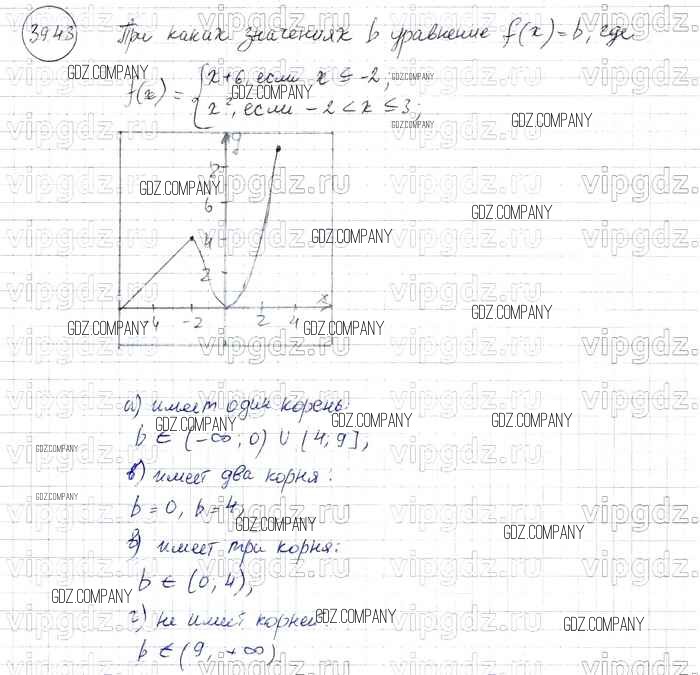 39.43 При каких значениях b уравнение f(x)=b, где
f(x) = { x+6, если x ≤ -2,
x², если -2 < x ≤ 3;
y
8
6
4
2
-4 -2 2 4 x
а) имеет один корень:
b ∈ (-∞; 0) ∪ (4; 9],
б) имеет два корня:
b = 0, b = 4,
в) имеет три корня:
b ∈ (0, 4),
г) не имеет корней:
b ∈ (9, +∞)
GDZ.COMPANY
vipgdz.ru